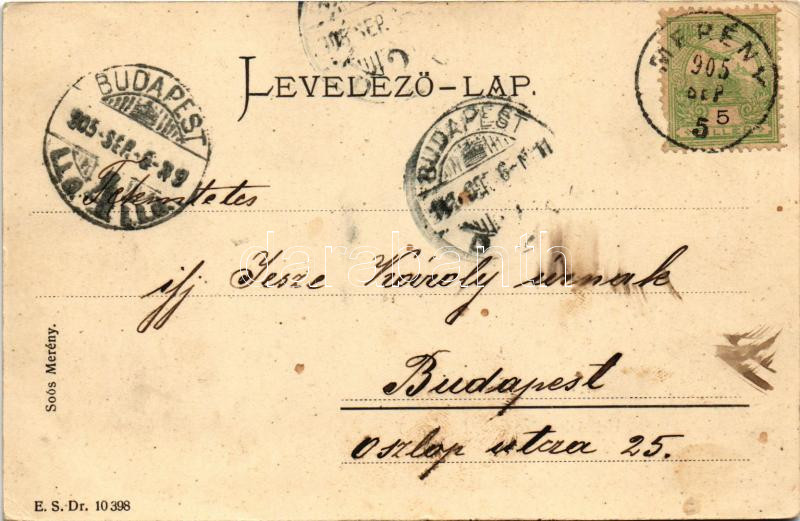 LEVELEZŐ-LAP.
MERÉNY
905
SEP
5
5
BUDAPEST
905-SEP.-6-
BUDAPEST
SEP
Tekintetes
ifj Jesze Károly úrnak
Budapest
Oszlop utcza 25.
Soós Merény.
E. S. Dr. 10398
darabanth